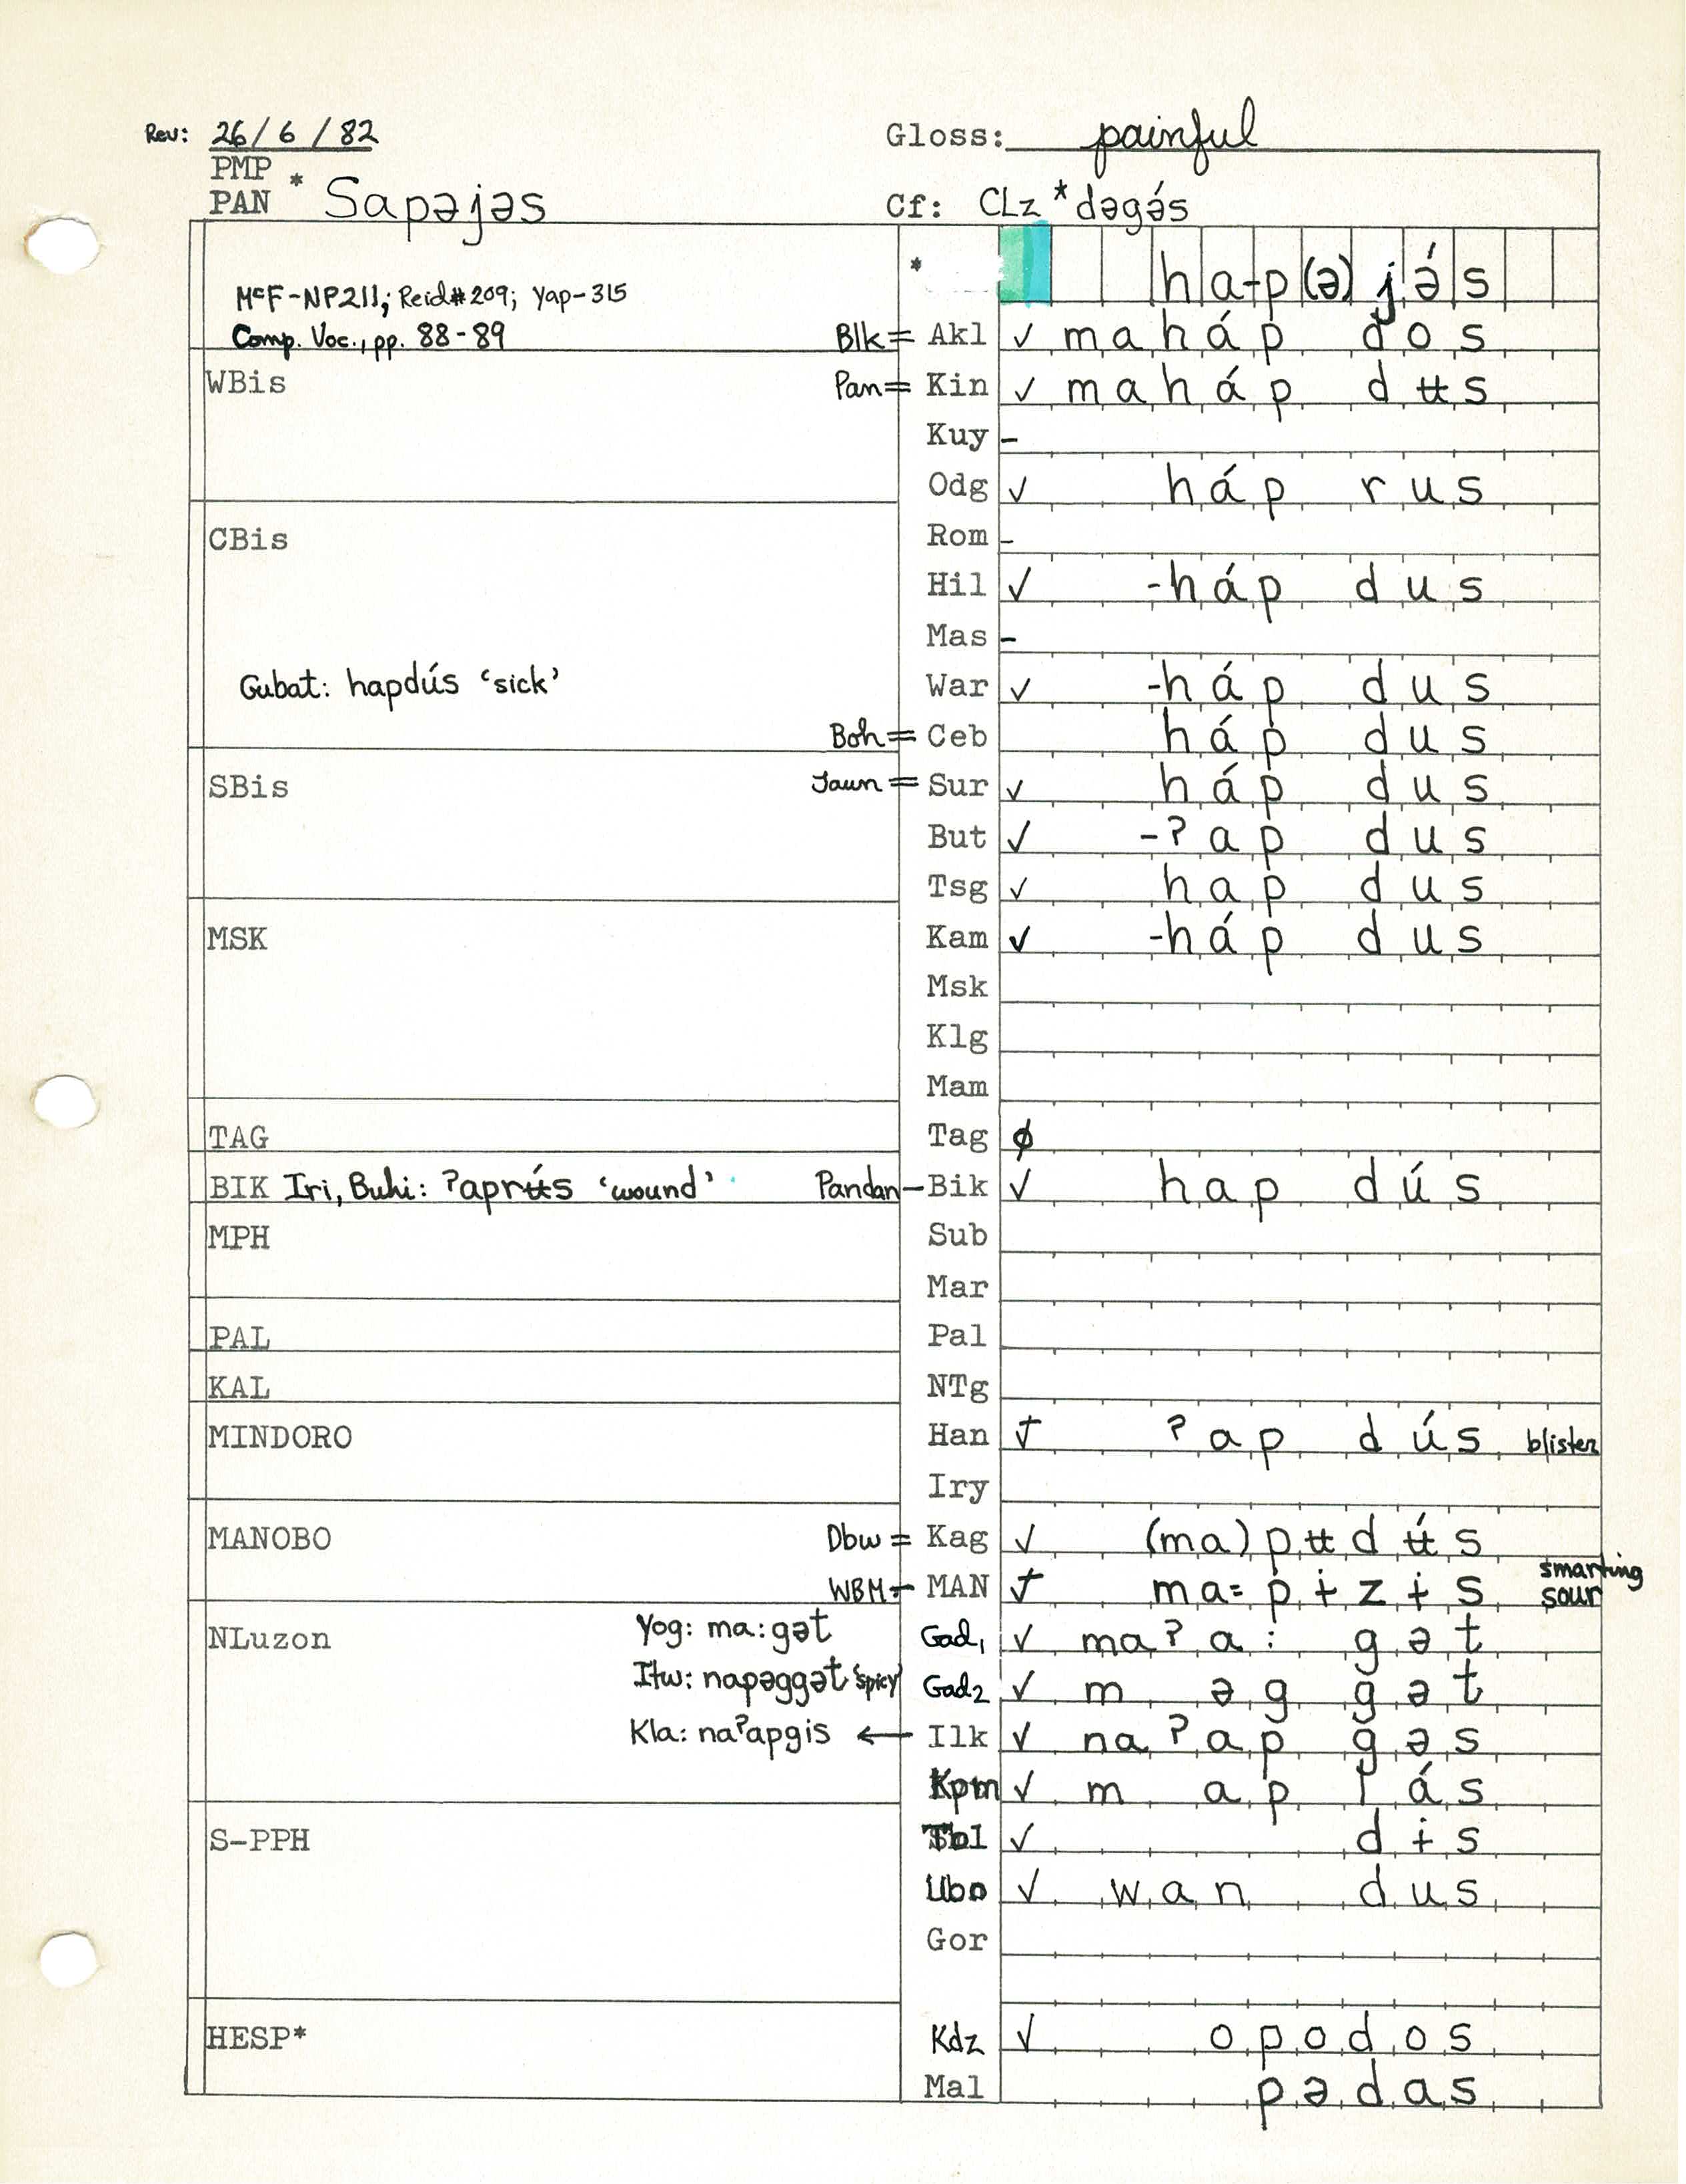 Rev: 26/6/82 Gloss: painful
PMP
PAN * Sapəjəs Cf: CLz *dəgə́s
* ha-p(ə)jə́s
McF-NP211; Reid#209; Yap-315
Comp. Voc., pp. 88-89 Blk= Akl ✓ maháp dos
WBis Pan= Kin ✓ maháp dʉs
Kuy –
Odg ✓ háp rus
CBis Rom –
Hil ✓ -háp dus
Mas –
Gubat: hapdús ‘sick’ War ✓ -háp dus
Boh= Ceb háp dus
SBis Jaun= Sur ✓ háp dus
But ✓ -ʔap dus
Tsg ✓ hap dus
MSK Kam ✓ -háp dus
Msk
Klg
Mam
TAG Tag ø
BIK Iri, Buhi: ʔaprʉ́s ‘wound’ Pandan– Bik ✓ hap dús
MPH Sub
Mar
PAL Pal
KAL NTg
MINDORO Han ✓ ʔap dús blister
Iry
MANOBO Dbw = Kag ✓ (ma)pʉdʉ́s
WBM– MAN ✓ ma=pɨzɨs smarting sour
NLuzon Yog: ma:gət Gad1 ✓ maʔa: gət
Itw: napəggət ‘spicy’ Gad2 ✓ m əg gət
Kla: naʔapgis ← Ilk ✓ naʔap gəs
Kpm ✓ m ap lás
S-PPH Tbl ✓ dɨs
Ubo ✓ wan dus
Gor
HESP* Kdz ✓ opodos
Mal pədas